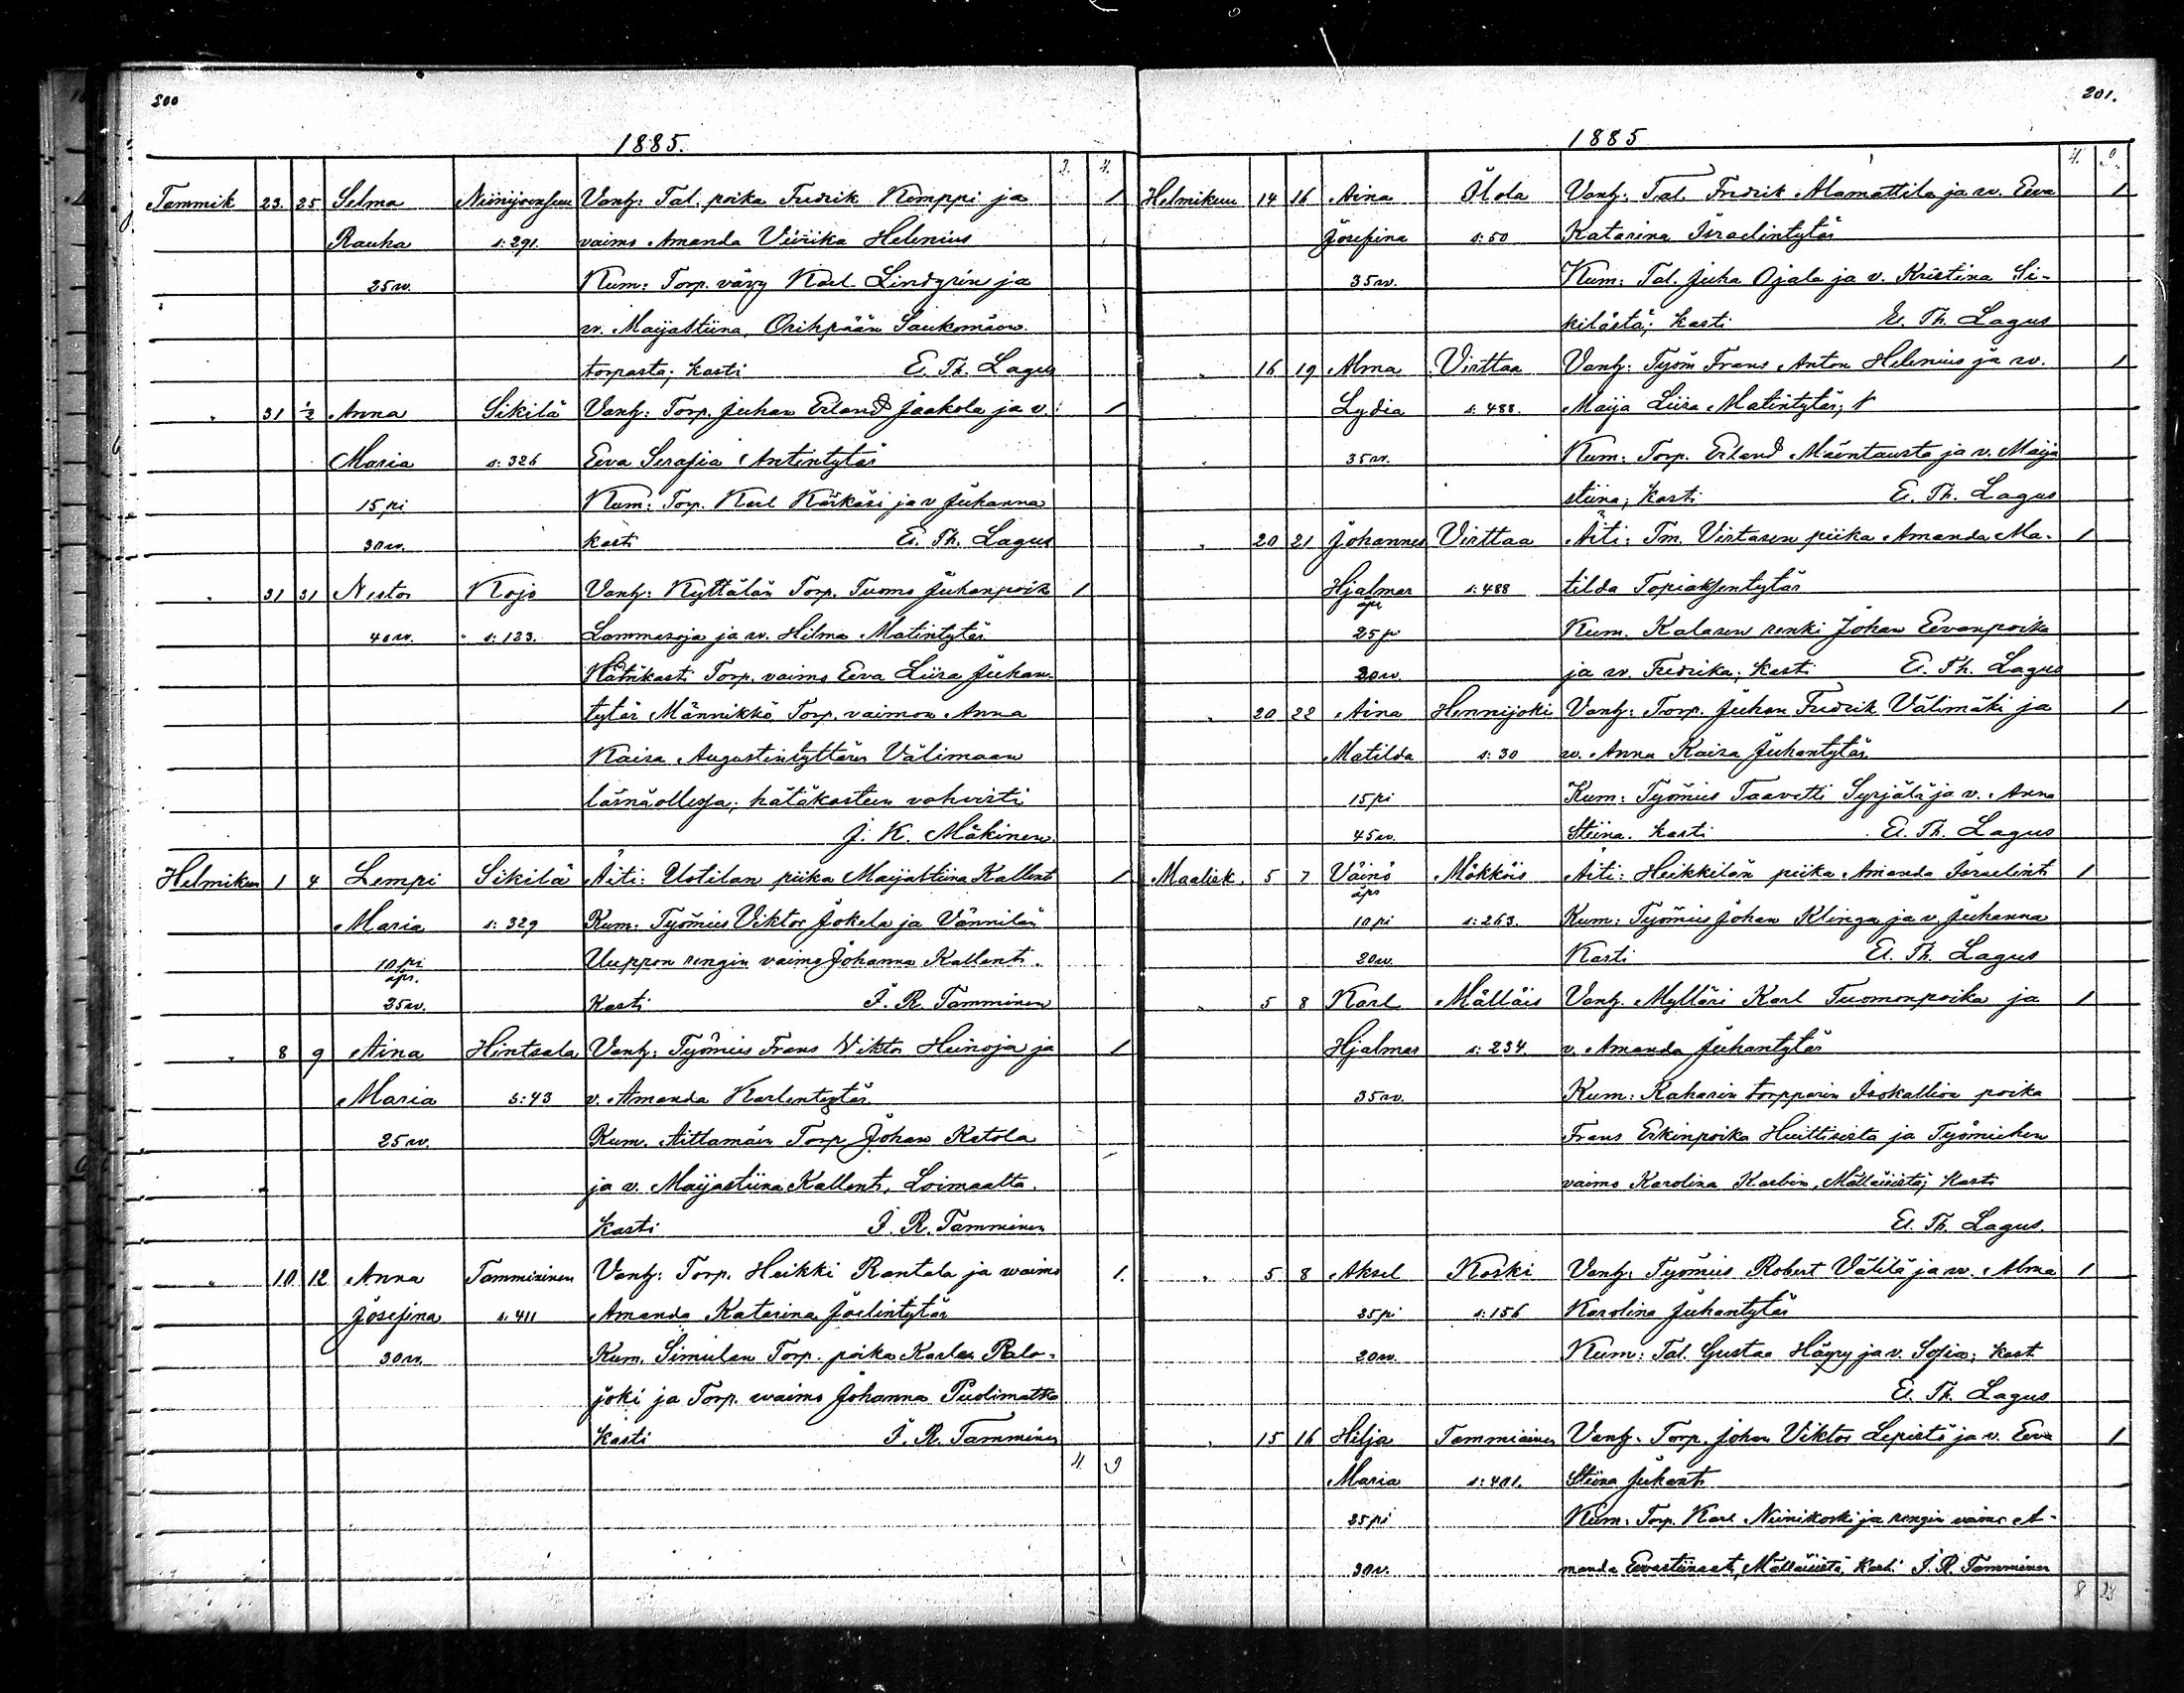 200
1885.
3. 4.
Tammik 23. 25 Selma Niinijoensuu Vanh: Tal. poika Fredrik Kemppi ja 1
Rauha s: 291. vaimo Amanda Viirika Helenius
25 w. Kum: Torp. vävy Karl Lindgrén ja
w. Maijastiina, Orihpään Saukomäen
torpasta; kasti E. Th. Lagus
" 31 1/2 Anna Sikilä Vanh: Torp. Juhan Erland Jaakola ja v. 1
Maria s: 326 Eeva Serafia Antintytär
15 pi Kum: Torp. Karl Kärkäsi ja v Juhanna
30 w. kasti E. Th. Lagus
" 31 31 Nestor Kojo Vanh: Kyttälän Torp. Tuomo Juhanpoik 1
40 w. s: 123. Lammasoja ja w. Hilma Matintytär
Hätäkasti Torp. vaimo Eeva Liisa Juhan-
tytär Männikkö Torp. vaimon Anna
Kaisa Augustintyttären Välimaan
läsnäollessa; hätäkasteen vahvisti
J. K. Mäkinen.
Helmikuu 1 4 Lempi Sikilä Äiti: Uotilan piika Maijastiina Kallent 1
Maria s: 329 Kum: Työmies Viktor Jokela ja Vännilän
10 pi Uuppon rengin vaimo Johanna Kallent.
äpr.
25 w. Kasti J. R. Tamminen
" 8 9 Aina Hintsala Vanh: Työmies Frans Viktor Heinoja ja 1
Maria s: 43 v. Amanda Karlentytär
25 w. Kum. Aittamäen Torp Johan Katola
ja v. Maijastiina Kallent, Loimaalta.
Kasti J. R. Tamminen
" 10 12 Anna Tammiainen Vanh: Torp. Heikki Rantala ja waimo 1.
Josefina s. 411 Amanda Katarina Joelintytär
30 w. Kum. Simulan Torp. poika Karle Palo-
joki ja Torp. waimo Johanna Puolimatka
Kasti J. R. Tamminen
4. 9
201.
1885
4. 9
Helmikuu 14 16 Aina Ulola Vanh: Tal. Fredrik Alamattila ja w. Eeva 1
Josefina s: 50 Katarina Israelintytär
35 w. Kum: Tal. Juha Ojala ja v. Kristina Si-
kilästä; kasti E. Th. Lagus
" 16 19 Alma Virttaa Vanh: Työm Frans Anton Helenius ja w. 1
Lydia s: 488. Maija Liisa Matintytär;
35 w. Kum: Torp. Erland Mäentausta ja v. Maija
stiina; kasti E. Th. Lagus
" 20 21 Johannes Virttaa Äiti: Tm. Virtasen piika Amanda Ma- 1
Hjalmar s: 488 tilda Topiaksentytär
äpr
25 pi Kum. Kalasen renki Johan Eevanpoika
20 w. ja w. Fredrika; kasti E. Th. Lagus
" 20 22 Aina Hennijoki Vanh: Torp. Juhan Fredrik Välimäki ja 1
Matilda s: 30 w. Anna Kaisa Juhantytär
15 pi Kum: Työmies Taavetti Syrjälä ja v. Anna
45 w. Stiina. kasti E. Th. Lagus
Maalisk. 5 7 Väinö Mökköis Äiti: Heikkilän piika Amanda Israelint 1
äpr
10 pi s: 263. Kum: Työmies Johan Klinga ja v. Juhanna
20 w. Kasti E. Th. Lagus
" 5 8 Karl Mälläis Vanh. Mylläri Karl Tuomonpoika ja 1
Hjalmar s: 234. v. Amanda Juhantytär
35 w. Kum: Raharin torpparin Isokallion poika
Frans Erkinpoika Huittisista ja Työmiehen
vaimo Karolina Karbin, Mälläisistä; Kasti
E. Th. Lagus.
" 5 8 Aksel Koski Vanh: Työmies Robert Välilä ja w. Alma 1
25 pi s: 156 Karolina Juhantytär
20 w. Kum: Tal. Gustaa Hägry ja v. Sofia; kast.
E. Th. Lagus
" 15 16 Hilja Tammiainen Vanh. Torp. Johan Viktor Lepistö ja v. Eeva 1
Maria s: 401. Stiina Juhant.
25 pi Kum: Torp. Karl Niinikoski ja rengin vaimo A-
30 w. manda Eevastiinant, Mälläisistä, kasti J. R. Tamminen
8